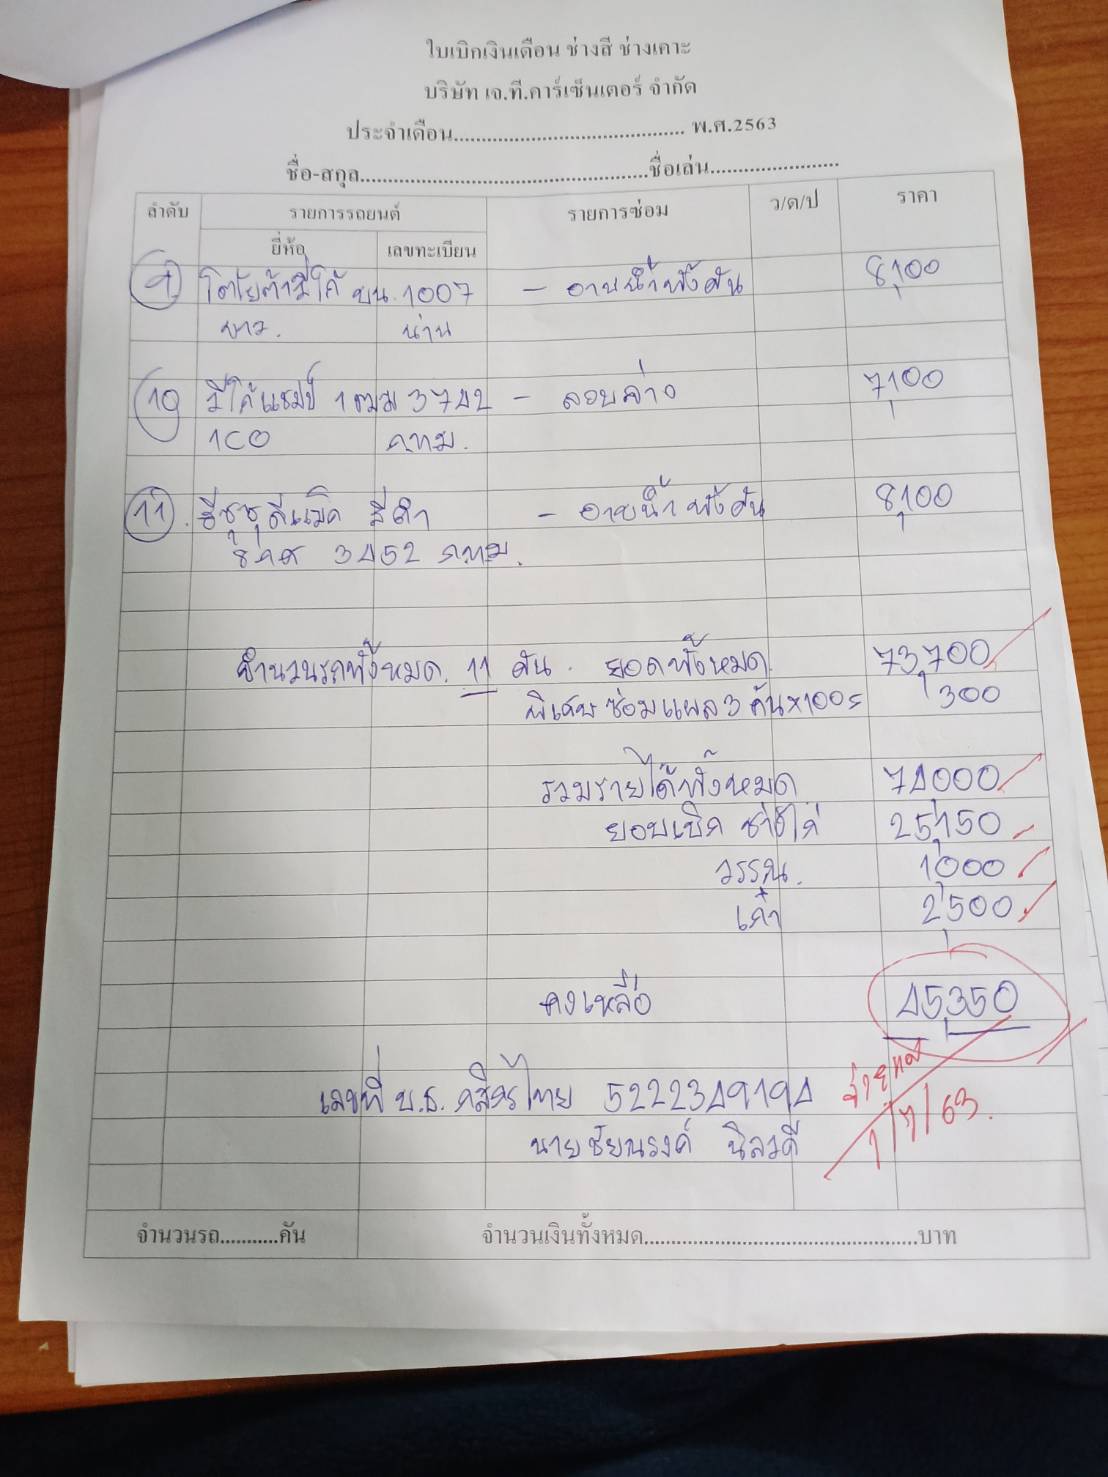 ใบเบิกเงินเดือน ช่างสี ช่างเคาะ
บริษัท เจ.ที.คาร์เซ็นเตอร์ จำกัด
ประจำเดือน........................................ พ.ศ.2563
ชื่อ-สกุล..................................................ชื่อเล่น......................
ลำดับ รายการรถยนต์ รายการซ่อม ว/ด/ป ราคา
ยี่ห้อ เลขทะเบียน
9 โตโยต้าวีโก้ บน. 1007 - อาบน้ำทั้งคัน 8,100
ขาว. น่าน
10 วีโก้แชมป์ 1ฒม 3742 - ลอบล่าง 7,100
กทม.
11. อีซูซุดีแม็ค สีดำ - อาบน้ำทั้งคัน 8,100
3452 กทม.
จำนวนรถทั้งหมด. 11 คัน. ยอดทั้งหมด. 73,700
พิเศษ ซ่อมแผล 3 คัน×100= 300
รวมรายได้ทั้งหมด 74,000
ยอบเบิก ช่างไก่ 25,150
วรรณ. 1,000
เก๋า 2,500
คงเหลือ 45,350
เลขที่ บ.ธ. กสิกรไทย 5222349194
จ่ายแล้ว
1/7/63.
นายชัยณรงค์ นิลวดี
จำนวนรถ...........คัน จำนวนเงินทั้งหมด................................................บาท